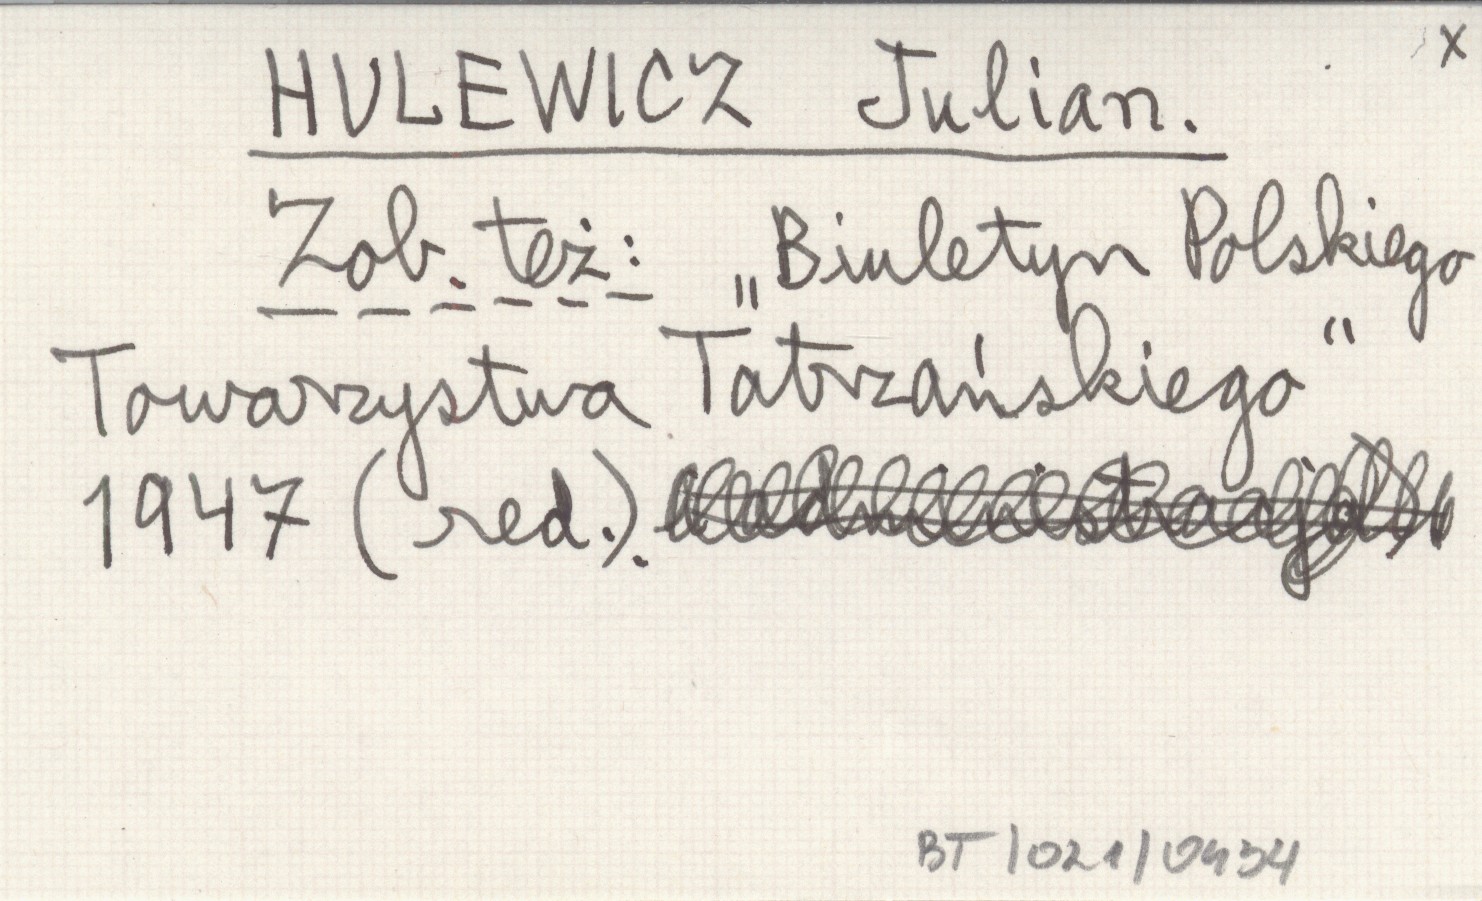 x
HULEWICZ Julian.
Zob. też: „Biuletyn Polskiego
Towarzystwa Tatrzańskiego“
1947 (red.).
BT/021/0434